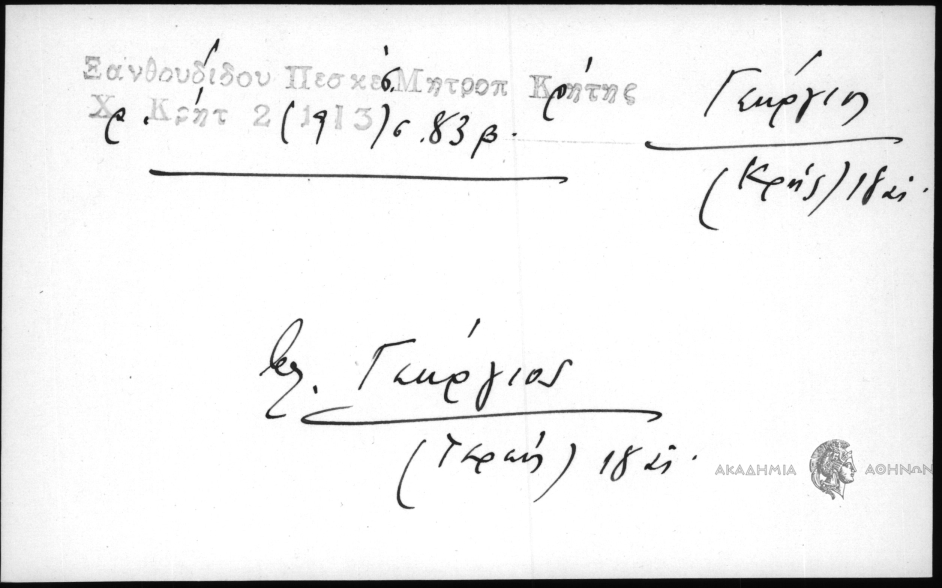 Ξανθουδίδου Πεσκέσ. Μητροπ Κρήτης
Χρ. Κρήτ 2 (1913) σ. 83 β.
Γεώργιος
(Κρής) 18 αι.
βλ. Γεώργιος
18 αι.
ΑΚΑΔΗΜΙΑ ΑΘΗΝΩΝ